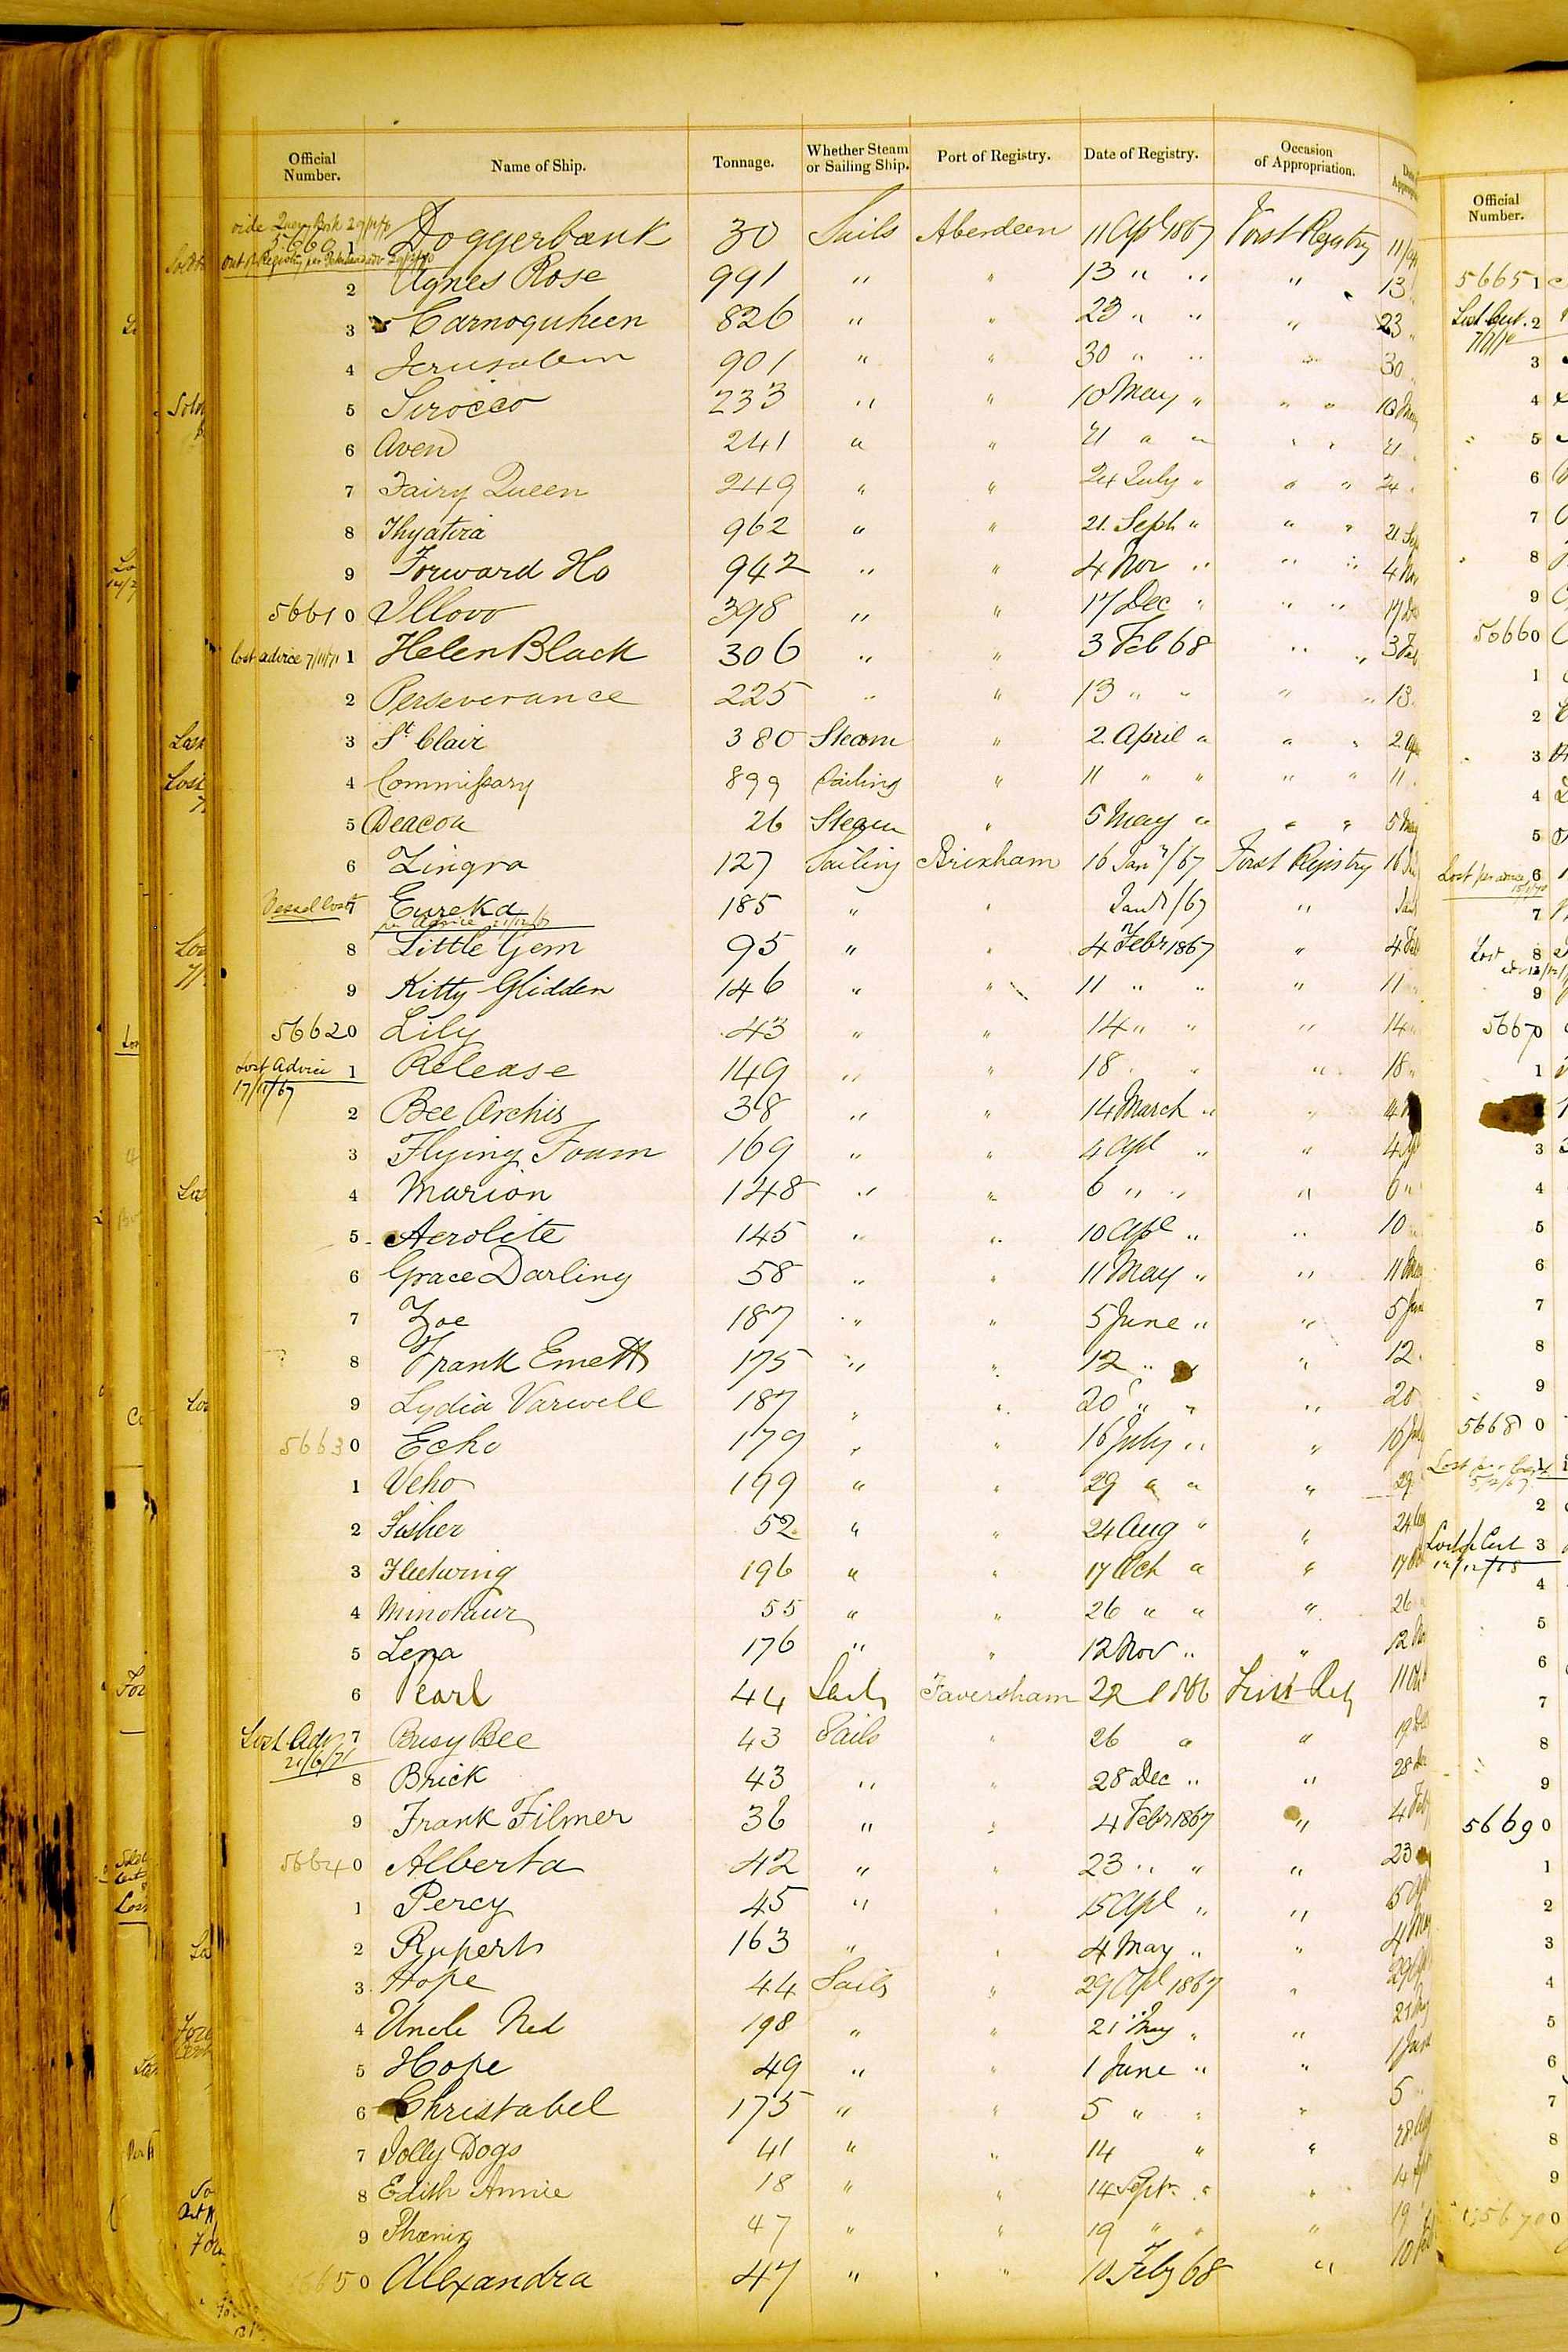 Official Number. Name of Ship. Tonnage. Whether Steam or Sailing Ship. Port of Registry. Date of Registry. Occasion of Appropriation.
5660 1 Doggerbank 30 Sails Aberdeen 11 Apl 1867 First Registry
2 Agnes Rose 991 " " 13 " " " 13
3 826 " " 23 " " " 23
4 Jerusalem 901 " " 30 " " " 30
5 Sirocco 233 " " 10 May " " " 10 May
6 Aven 241 " " 21 " " " " 21
7 Fairy Queen 249 " " 24 July " " " 24
8 Thyatira 962 " " 21 Sept " " " 21 Sep
9 Forward Ho 942 " " 4 Nov " " " 4 Nov
5661 0 Illovo 398 " " 17 Dec " " " 17 De
lost advice 7/11/71 1 Helen Black 306 " " 3 Feb 68 " " 3 Feb
2 Perseverance 225 " " 13 " " " " 13
3 St Clair 380 Steam " 2 April " " " 2 Ap
4 Commissary 899 Sailing " 11 " " " " 11
5 Deacon 26 Steam " 5 May " " " 5 May
6 Zingra 127 Sailing Brixham 16 Jany /67 First Registry 16 Jan
Vessel lost 7 Eureka 185 " " Jany /67 " Jan
per Advice 21/12/67
8 Little Gem 95 " " 4 Febr 1867 " 4 Feb
9 Kitty Glidden 146 " " 11 " " " 11
5662 0 Lily 43 " " 14 " " " 14
Lost Advice 1 Release 149 " " 18 " " 18
17/11/67
2 Bee Orchis 38 " " 14 March " "
3 Flying Foam 169 " " 4 Apl " " 4 Ap
4 Marion 148 " " 6 " " " 6 "
5 Aerolite 145 " " 10 Apl " " 10
6 Grace Darling 58 " " 11 May " " 11 May
7 Zoe 187 " " 5 June " " 5 Jun
8 Frank Emett 175 " " 12 " " 12
9 Lydia Varwell 187 " " 20 " " " 20
5663 0 Echo 179 " " 16 July " " 16 July
1 Veho 199 " " 29 " " " 29
2 Fisher 52 " " 24 Aug " " 24 Aug
3 Fleetwing 196 " " 17 Oct " " 17 Oc
4 Minotaur 55 " " 26 " " " 26
5 Lena 176 " " 12 Nov " " 12 No
6 Pearl 44 Sails Faversham 22 First Reg 11 Oct
Lost Adv 7 Busy Bee 43 Sails " 26 " " 19 Dec
21/6/71
8 Brick 43 " " 28 Dec " " 28 Dec
9 Frank Filmer 36 " " 4 Febr 1867 " 4 Feb
5664 0 Alberta 42 " " 23 " " " 23
1 Percy 45 " " 15 Apl " " 15 Ap
2 Rupert 163 " " 4 May " " 4 May
3 Hope 44 Sails " 29 Apl 1867 " 29 Ap
4 Uncle Ned 198 " " 21 May " " 21 My
5 Hope 49 " " 1 June " " 1 June
6 Christabel 175 " " 5 " " " 5
7 Jolly Dogs 41 " " 14 " " 28 Aug
8 Edith Annie 18 " " 14 Sept " " 14 Sep
9 Phœnix 47 " " 19 " " " 19
5650 0 Alexandra 47 " " 10 Feby 68 " 10 Feb
Official Number.
5665 1
2
3
4
5
6
7
8
9
5666 0
1
2
3
4
5
Lost per advice 6
7
Lost 8
9
5667 0
1
3
4
5
6
7
8
9
5668 0
1
2
3
4
5
6
7
8
9
5669 0
1
2
3
4
5
6
7
8
9
5670 0